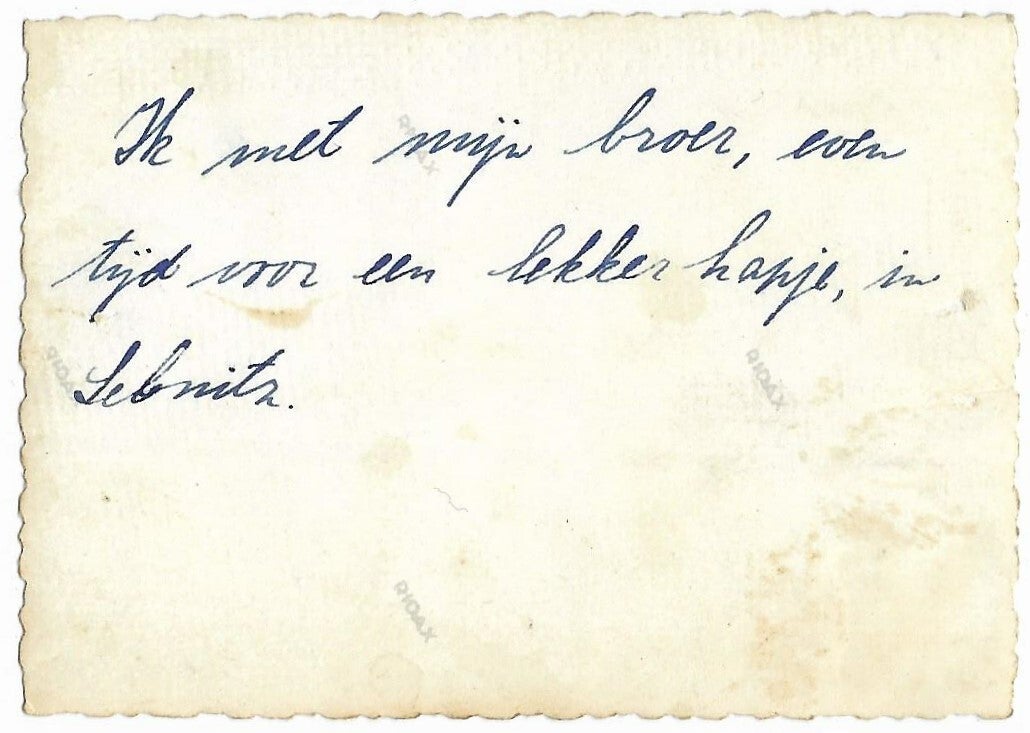 Ik met mijn broer, even
tijd voor een lekker hapje, in
Sebnitz.
RIDAX
RIDAX
RIDAX
RIDAX